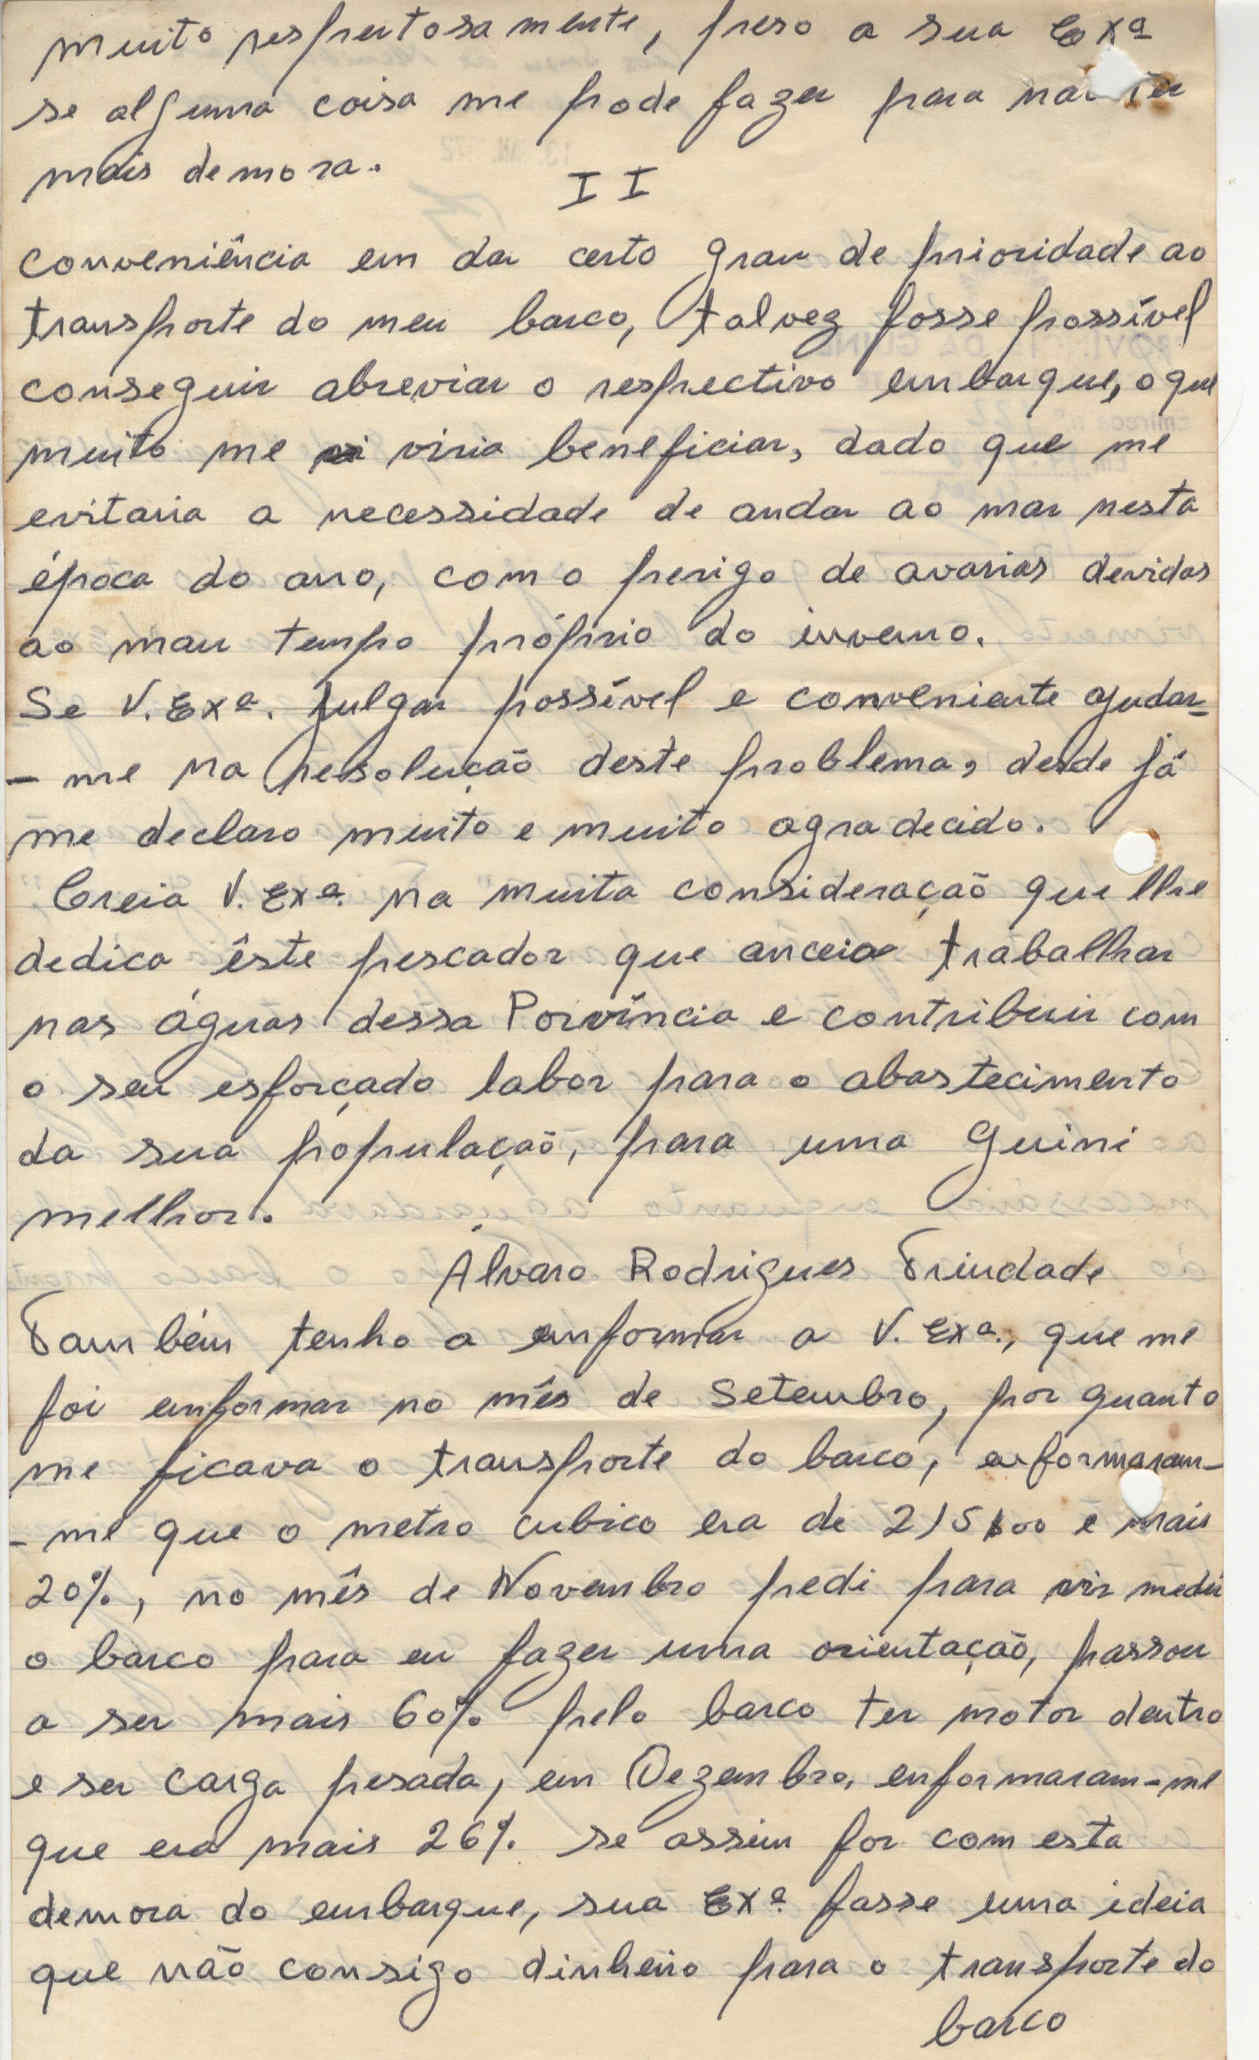 muito respeitosamente, peso a sua Exª
se alguma coisa me pode fazer para não ter
mais demora.
II
conveniência em dar certo grau de prioridade ao
transporte do meu barco, talvez fosse possível
conseguir abreviar o respectivo embarque, o que
muito me viria beneficiar, dado que me
evitaria a necessidade de andar ao mar nesta
época do ano, com o perigo de avarias devidas
ao mau tempo próprio do inverno.
Se V. Exª. julgar possível e conveniente ajudar-
-me na resolução deste problema, desde já
me declaro muito e muito agradecido.
Creia V. Exª. na muita consideração que lhe
dedica êste pescador que anceia trabalhar
nas águas dessa Porvíncia e contribuir com
o seu esforçado labor para o abastecimento
da sua população, para uma Guini
melhor.
Álvaro Rodrigues Trindade
Também tenho a enformar a V. Exª., que me
foi enformar no mês de Setembro, por quanto
me ficava o transporte do barco, enformaram-
-me que o metro cubico era de 215$00 e mais
20%, no mês de Novembro pedi para vir medir
o barco para eu fazer uma orientação, passou
a ser mais 60% pelo barco ter motor dentro
e ser carga pesada, em Dezembro, enformaram-me
que era mais 26% se assim for com esta
demora do embarque, sua Exª. fasse uma ideia
que não consigo dinheiro para o transporte do
barco